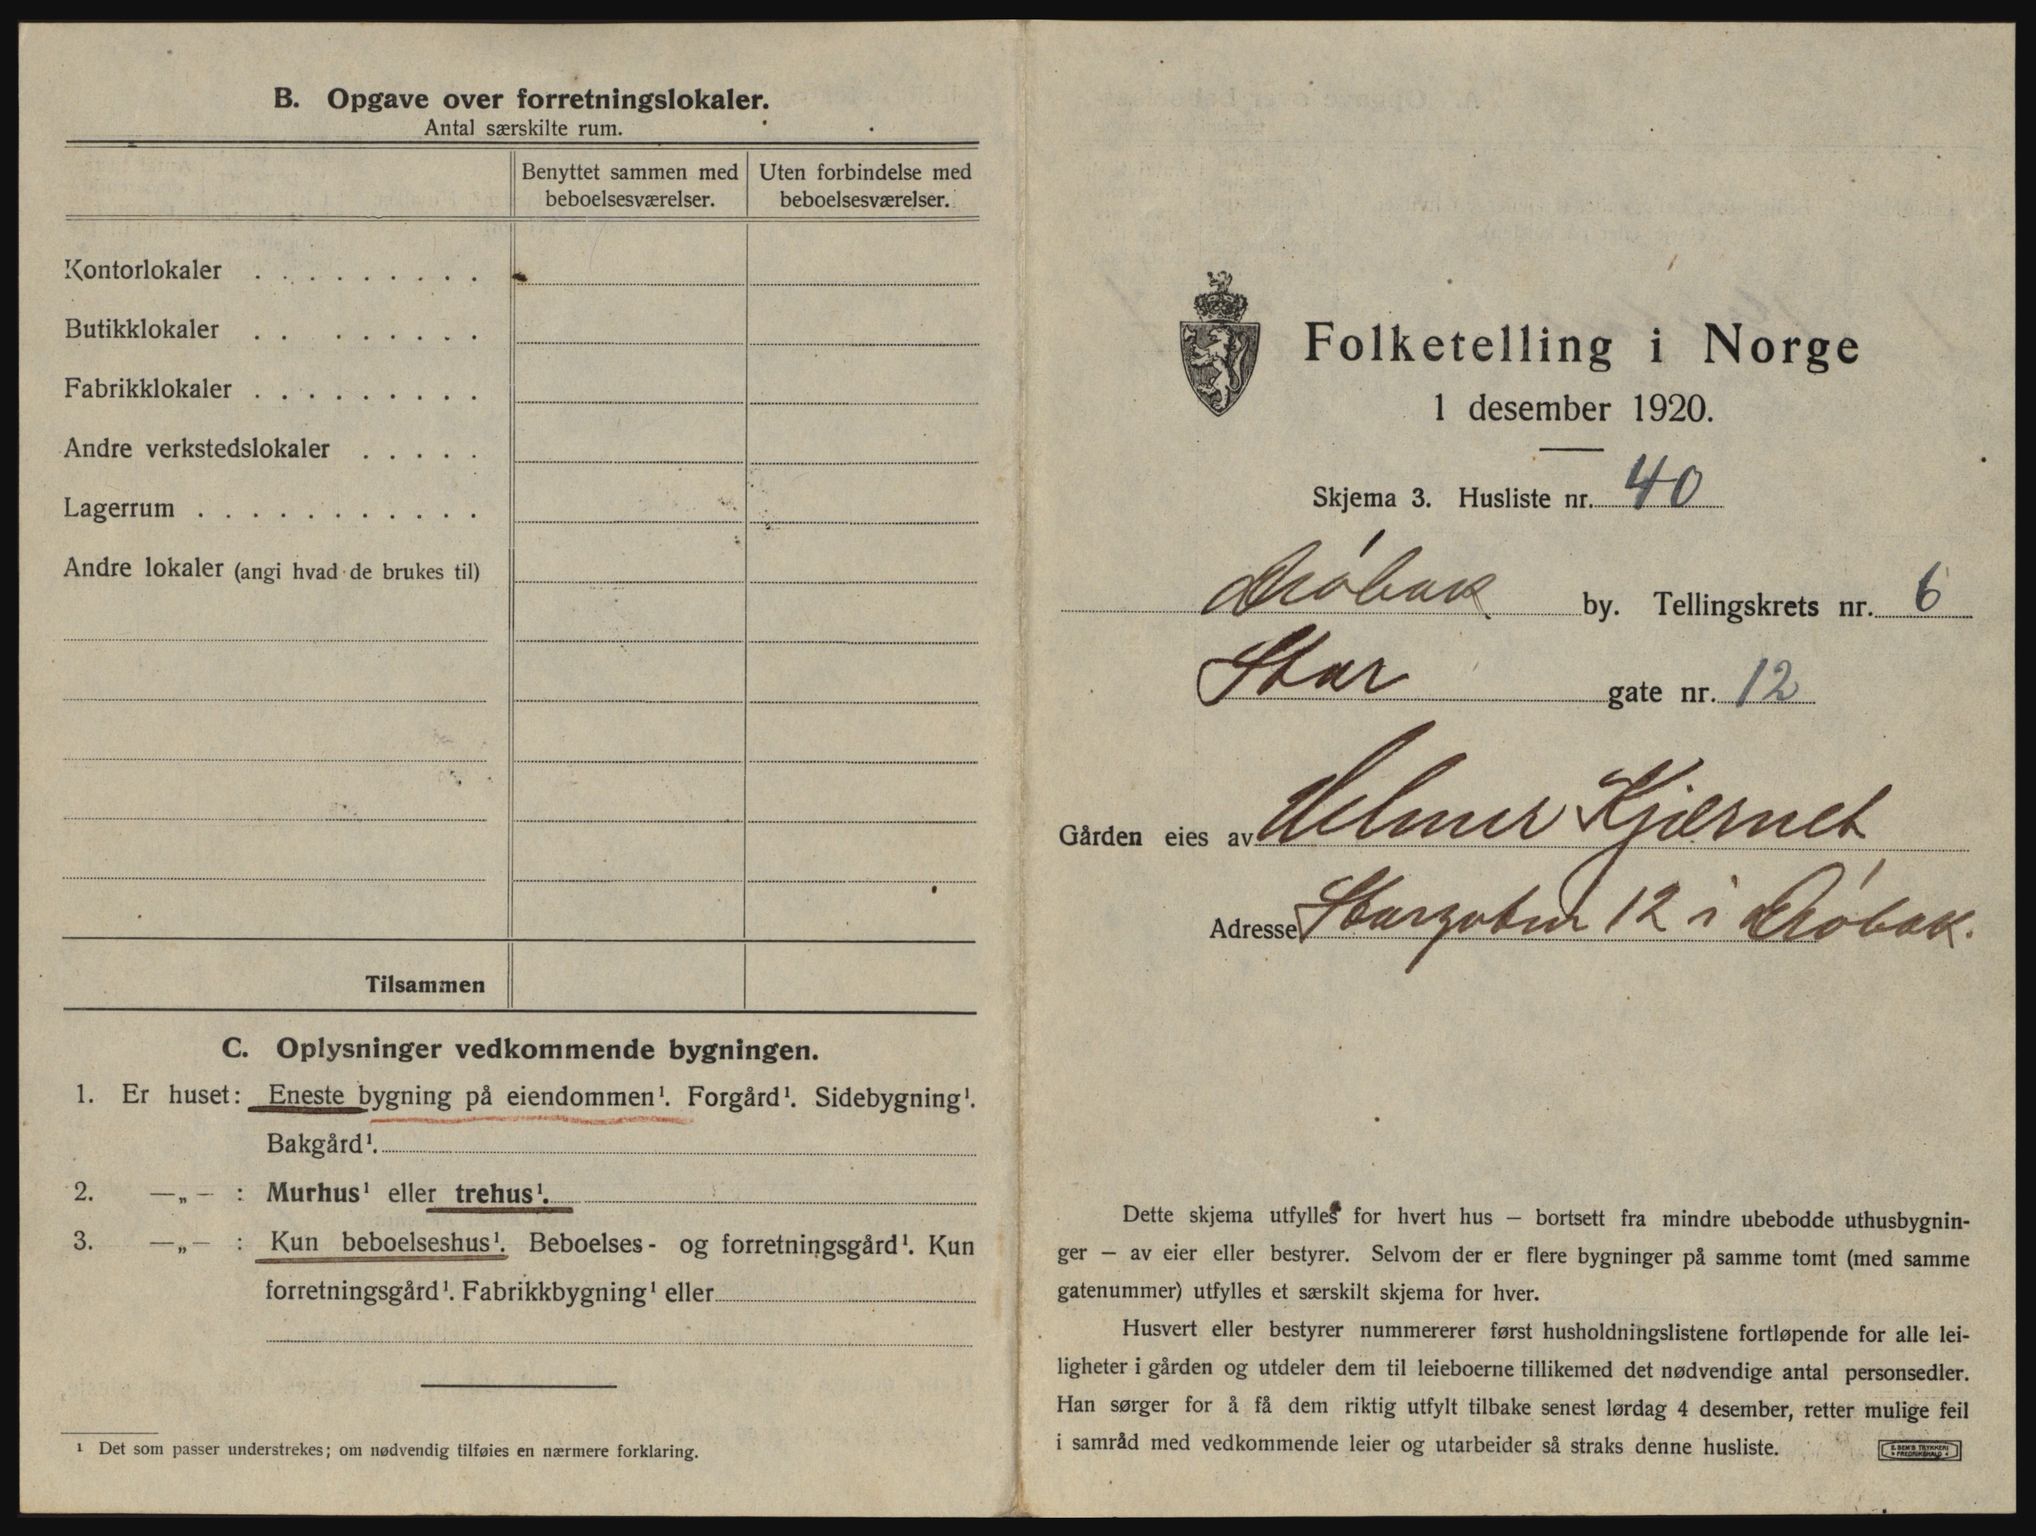 B. Opgave over forretningslokaler.
Antal særskilte rum.
Benyttet sammen med
beboelsesværelser.
Uten forbindelse med
beboelsesværelser.
Kontorlokaler
Butikklokaler
Fabrikklokaler
Andre verkstedslokaler
Lagerrum
Andre lokaler (angi hvad de brukes til)
Tilsammen
C. Oplysninger vedkommende bygningen.
1. Er huset: Eneste bygning på eiendommen¹. Forgård¹. Sidebygning¹.
Bakgård¹.
2. —„— : Murhus¹ eller trehus¹.
3. —„— : Kun beboelseshus¹. Beboelses- og forretningsgård¹. Kun
forretningsgård¹. Fabrikkbygning¹ eller
¹ Det som passer understrekes; om nødvendig tilføies en nærmere forklaring.
Folketelling i Norge
1 desember 1920.
Skjema 3. Husliste nr. 40
Drøbak by. Tellingskrets nr. 6
Stor gate nr. 12
Gården eies av Helmer Kjærnet
Adresse Storgaten 12 i Drøbak.
Dette skjema utfylles for hvert hus – bortsett fra mindre ubebodde uthusbygnin-
ger – av eier eller bestyrer. Selvom der er flere bygninger på samme tomt (med samme
gatenummer) utfylles et særskilt skjema for hver.
Husvert eller bestyrer nummererer først husholdningslistene fortløpende for alle lei-
ligheter i gården og utdeler dem til leieboerne tillikemed det nødvendige antal personsedler.
Han sørger for å få dem riktig utfylt tilbake senest lørdag 4 desember, retter mulige feil
i samråd med vedkommende leier og utarbeider så straks denne husliste.
E. SEM'S TRYKKERI
FREDRIKSHALD